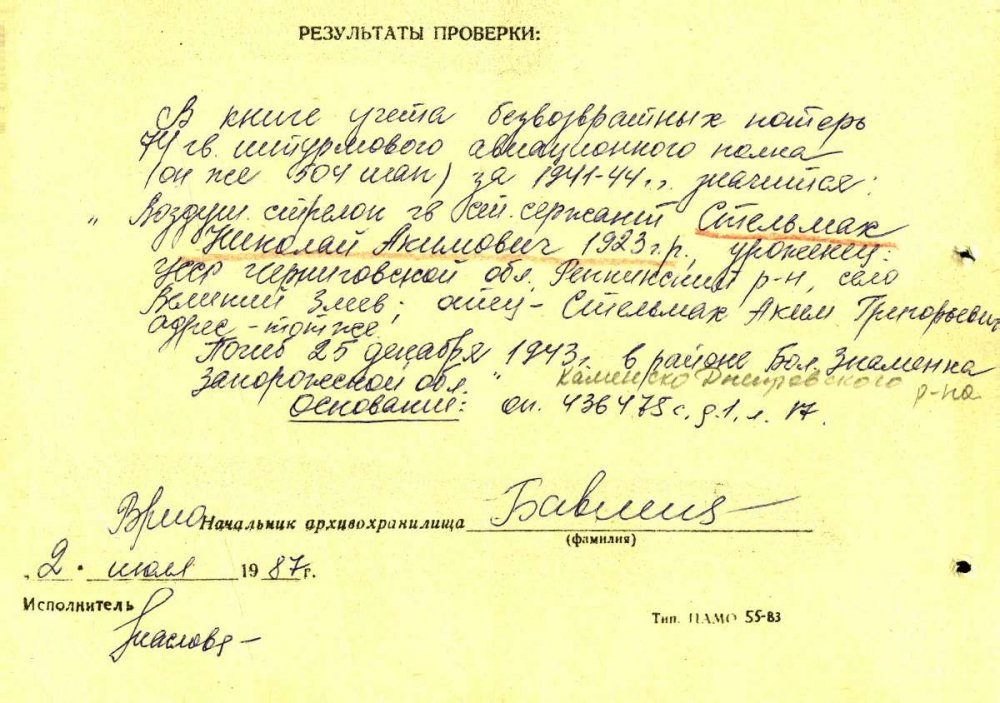 РЕЗУЛЬТАТЫ ПРОВЕРКИ:
В книге учета безвозвратных потерь
74 гв. штурмового авиационного полка
(он же 504 шап) за 1941-44 г.г. значится:
„ Воздуш. стрелок гв ст. сержант Стельмак
Николай Акимович 1923 г.р., уроженец:
УССР Черниговской обл. Репкинский р-н, село
Великий Злеев; отец - Стельмак Аким Григорьевич
адрес - тот же
Погиб 25 декабря 1943 г. в районе Бол. Знаменка
Запорожской обл. "
Каменско Днепровского р-на
Основание: оп. 436475с, д.1, л. 17.
Врио Начальник архивохранилища Бавлина
(фамилия)
„ 2 " июля 1987 г.
Исполнитель
Тип. ЦАМО 55-83